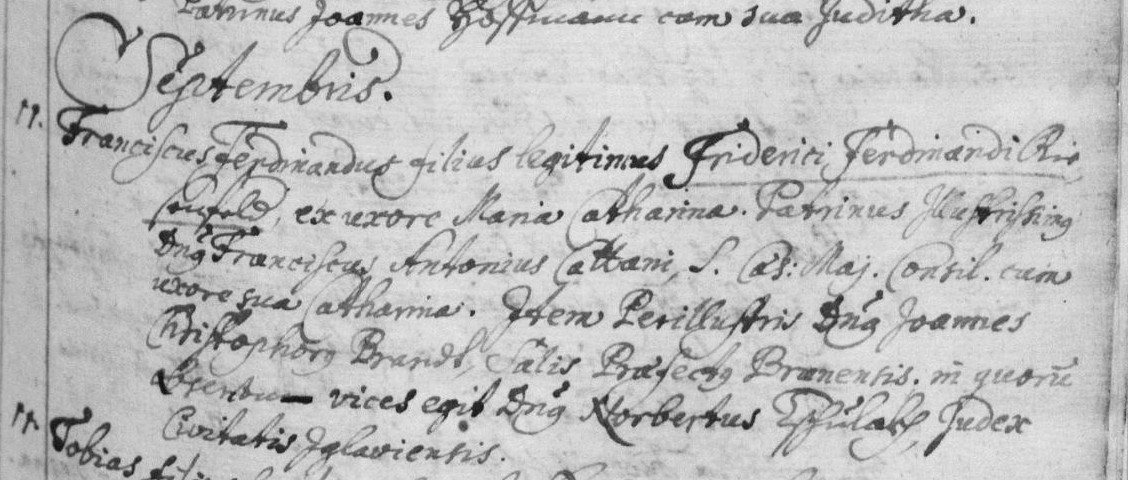 Patrinus Joannes Hoffmann cum sua Juditha.
Septembris.
11. Franciscus Ferdinandus filius legitimus Friderici Ferdinandi Rie
senfeld, ex uxore Maria Catharina. Patrinus Illustrissimg
Dng Franciscus Antonius Cattani, S. Cæs: Maj. Consil. cum
uxore sua Catharina. Item Perillustris Dng Joannes
Christophorg Brandt, Salis Præfectg Brunensis. in quorū
vices egit Dng Norbertus Judex
Civitatis Iglaviensis.
Tobias